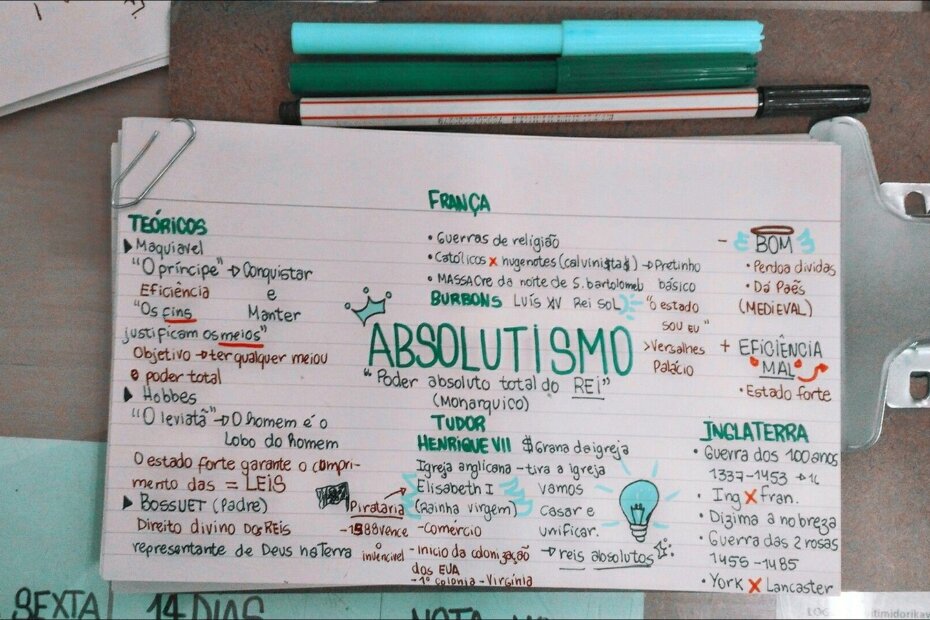 FRANÇA
• Guerras de religião
• Católicos x hugenotes (calvinistas) → Pretinho básico
• MASSACRE da noite de S. bartolomeb
BURBONS Luís XV Rei Sol "o estado sou eu"
>Versalhes Palácio
TEÓRICOS
▶ Maquiavel
"O príncipe" → Conquistar e Manter
Eficiência
"Os fins
justificam os meios"
Objetivo → ter qualquer meiou
o poder total
▶ Hobbes
"O leviatã" → O homem é o
Lobo do homem
O estado forte garante o compri-
mento das = LEIS
▶ BOSSUET (Padre)
Direito divino DOS REIS
representante de Deus na Terra
ABSOLUTISMO
"Poder absoluto total do REI"
(Monarquico)
TUDOR
HENRIQUE VII $Grana da igreja
Igreja anglicana - tira a igreja
Elisabeth I
(Rainha virgem)
vamos
casar e
unificar.
→ reis absolutos
Pirataria
-1588 vence
o invencivel
-comércio
-Inicio da colonização
dos EUA
-1° colonia - Virgínia
- BOM
• Perdoa dividas
• Dá Paês
(MEDIEVAL)
+ EFICIÊNCIA
MAL
• Estado forte
INGLATERRA
• Guerra dos 100 anos
1337-1453
• Ing x Fran.
• Dizima a nobreza
• Guerra das 2 rosas
1455-1485
• York x Lancaster
SEXTA
14 DIAS
timidorikav